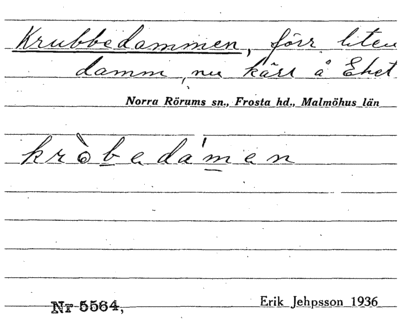 Krubbedammen, förr liten
damm, nu kärr å Ehet
Norra Rörums sn., Frosta hd., Malmöhus län
kròbedámen
Nr 5564,
Erik Jehpsson 1936